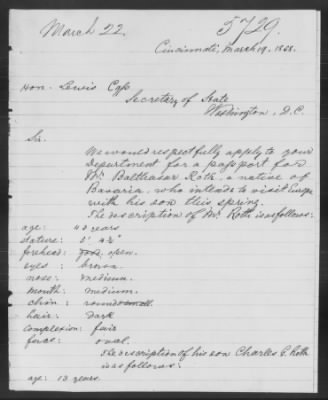 March 22.
5729.
Cincinnati, March 19. 1858.
Hon. Lewis Cass
Secretary of State
Washington, D.C.
Sir.
We would respectfully apply to your
Department for a passport for
Mr. Balthasar Roth, a native of
Bavaria, who intends to visit Europe
with his son this spring.
The description of Mr. Roth is as follows:
age: 43 years
stature: 5' 4½"
forehead: open.
eyes: brown.
nose: medium.
mouth: medium.
chin: round small.
hair: dark
complexion: fair
face: oval.
The description of his son Charles G. Roth
is as follows:
age: 13 years.